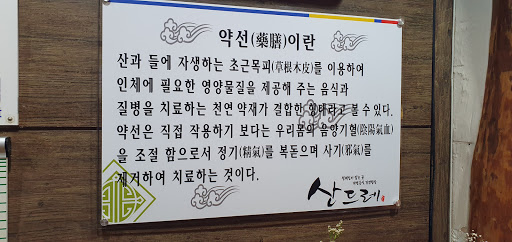 약선(藥膳)이란
산과 들에 자생하는 초근목피(草根木皮)를 이용하여
인체에 필요한 영양물질을 제공해 주는 음식과
질병을 치료하는 천연 약재가 결합한 형태라고 볼 수 있다.
약선은 직접 작용하기 보다는 우리몸의 음양기혈(陰陽氣血)
을 조절 함으로서 정기(精氣)를 북돋으며 사기(邪氣)를
제거하여 치료하는 것이다.
산드레